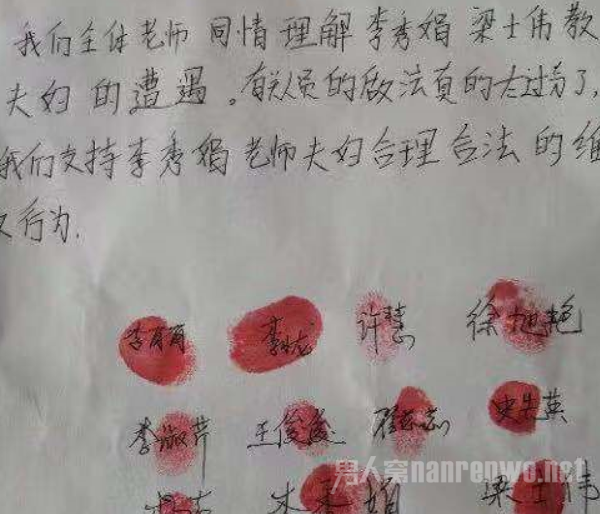 我们全体老师 同情 理解 李秀娟 梁士伟教
夫妇 的 遭遇。有关人员的做法真的太过分了,
我们支持李秀娟 老师夫妇合理合法 的 维
权行为.
李莉莉 李成龙 许慧 徐旭艳
李淑芹 王俊俊 宋先英
朱秀娟 梁士伟
男人窝nanrenwo.net